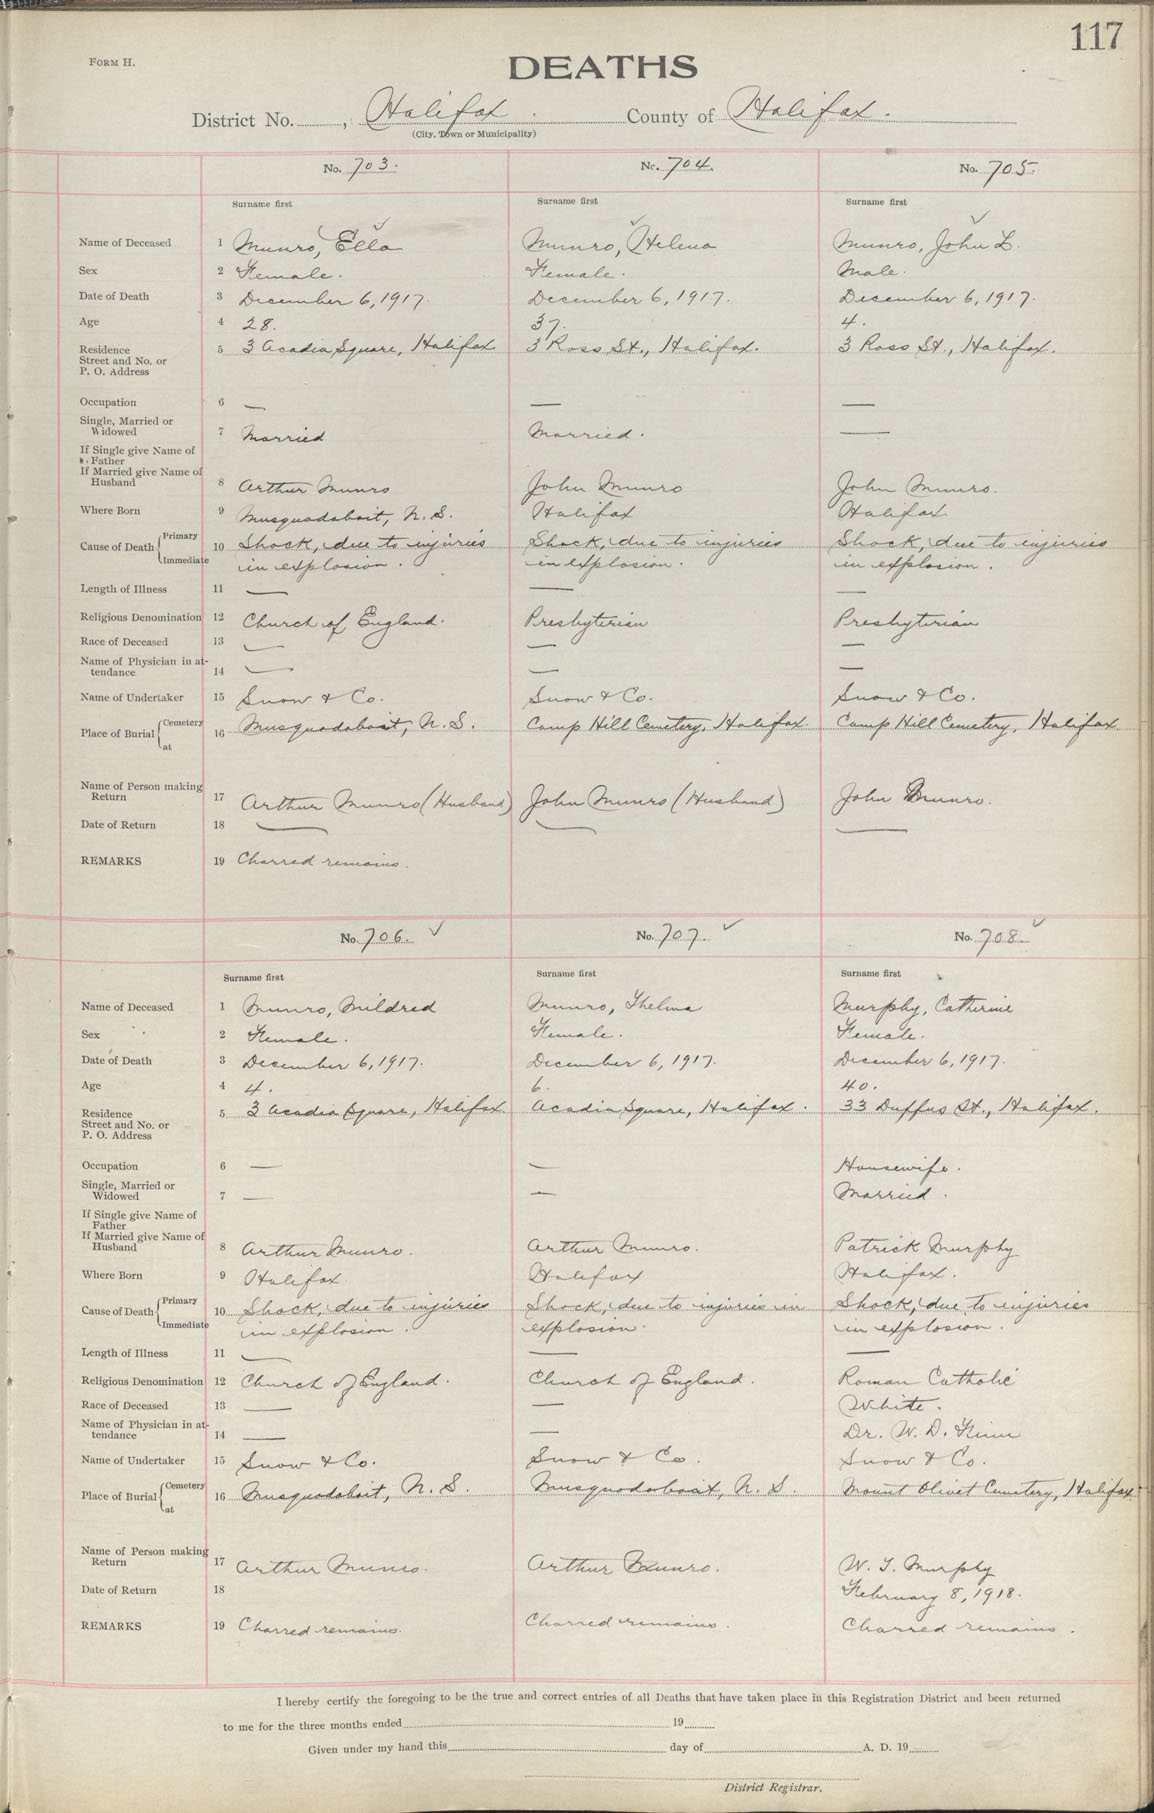 117
FORM H.
DEATHS
District No. , Halifax. County of Halifax.
(City, Town or Municipality)
No. 703. No. 704. No. 705.
Surname first Surname first Surname first
Name of Deceased 1 Munro, Ella Munro, Helena Munro, John L.
Sex 2 Female. Female. Male.
Date of Death 3 December 6, 1917. December 6, 1917. December 6, 1917.
Age 4 28. 37. 4.
Residence Street and No. or P. O. Address 5 3 Acadia Square, Halifax 3 Ross St., Halifax. 3 Ross St., Halifax.
Occupation 6 — — —
Single, Married or Widowed 7 Married Married. —
If Single give Name of Father
If Married give Name of Husband 8 Arthur Munro John Munro John Munro.
Where Born 9 Musquodoboit, N. S. Halifax Halifax
Cause of Death { Primary 10 Shock, due to injuries Shock, due to injuries Shock, due to injuries
Immediate in explosion. in explosion. in explosion.
Length of Illness 11 — — —
Religious Denomination 12 Church of England. Presbyterian Presbyterian
Race of Deceased 13 — — —
Name of Physician in attendance 14 — — —
Name of Undertaker 15 Snow & Co. Snow & Co. Snow & Co.
Place of Burial { Cemetery at 16 Musquodoboit, N. S. Camp Hill Cemetery, Halifax. Camp Hill Cemetery, Halifax
Name of Person making Return 17 Arthur Munro (Husband) John Munro (Husband) John Munro.
Date of Return 18 — — —
REMARKS 19 Charred remains.
No. 706. No. 707. No. 708.
Surname first Surname first Surname first
Name of Deceased 1 Munro, Mildred Munro, Thelma Murphy, Catherine
Sex 2 Female. Female. Female.
Date of Death 3 December 6, 1917. December 6, 1917. December 6, 1917.
Age 4 4. 6. 40.
Residence Street and No. or P. O. Address 5 3 Acadia Square, Halifax Acadia Square, Halifax. 33 Duffus St., Halifax.
Occupation 6 — — Housewife.
Single, Married or Widowed 7 — — Married.
If Single give Name of Father
If Married give Name of Husband 8 Arthur Munro. Arthur Munro. Patrick Murphy
Where Born 9 Halifax Halifax Halifax.
Cause of Death { Primary 10 Shock, due to injuries Shock, due to injuries in Shock, due to injuries
Immediate in explosion. explosion. in explosion.
Length of Illness 11 — — —
Religious Denomination 12 Church of England. Church of England. Roman Catholic
Race of Deceased 13 — — White.
Name of Physician in attendance 14 — — Dr. W. D. Finn
Name of Undertaker 15 Snow & Co. Snow & Co. Snow & Co.
Place of Burial { Cemetery at 16 Musquodoboit, N. S. Musquodoboit, N. S. Mount Olivet Cemetery, Halifax.
Name of Person making Return 17 Arthur Munro. Arthur Munro. W. J. Murphy
Date of Return 18 February 8, 1918.
REMARKS 19 Charred remains. Charred remains. Charred remains.
I hereby certify the foregoing to be the true and correct entries of all Deaths that have taken place in this Registration District and been returned
to me for the three months ended 19
Given under my hand this day of A. D. 19
District Registrar.